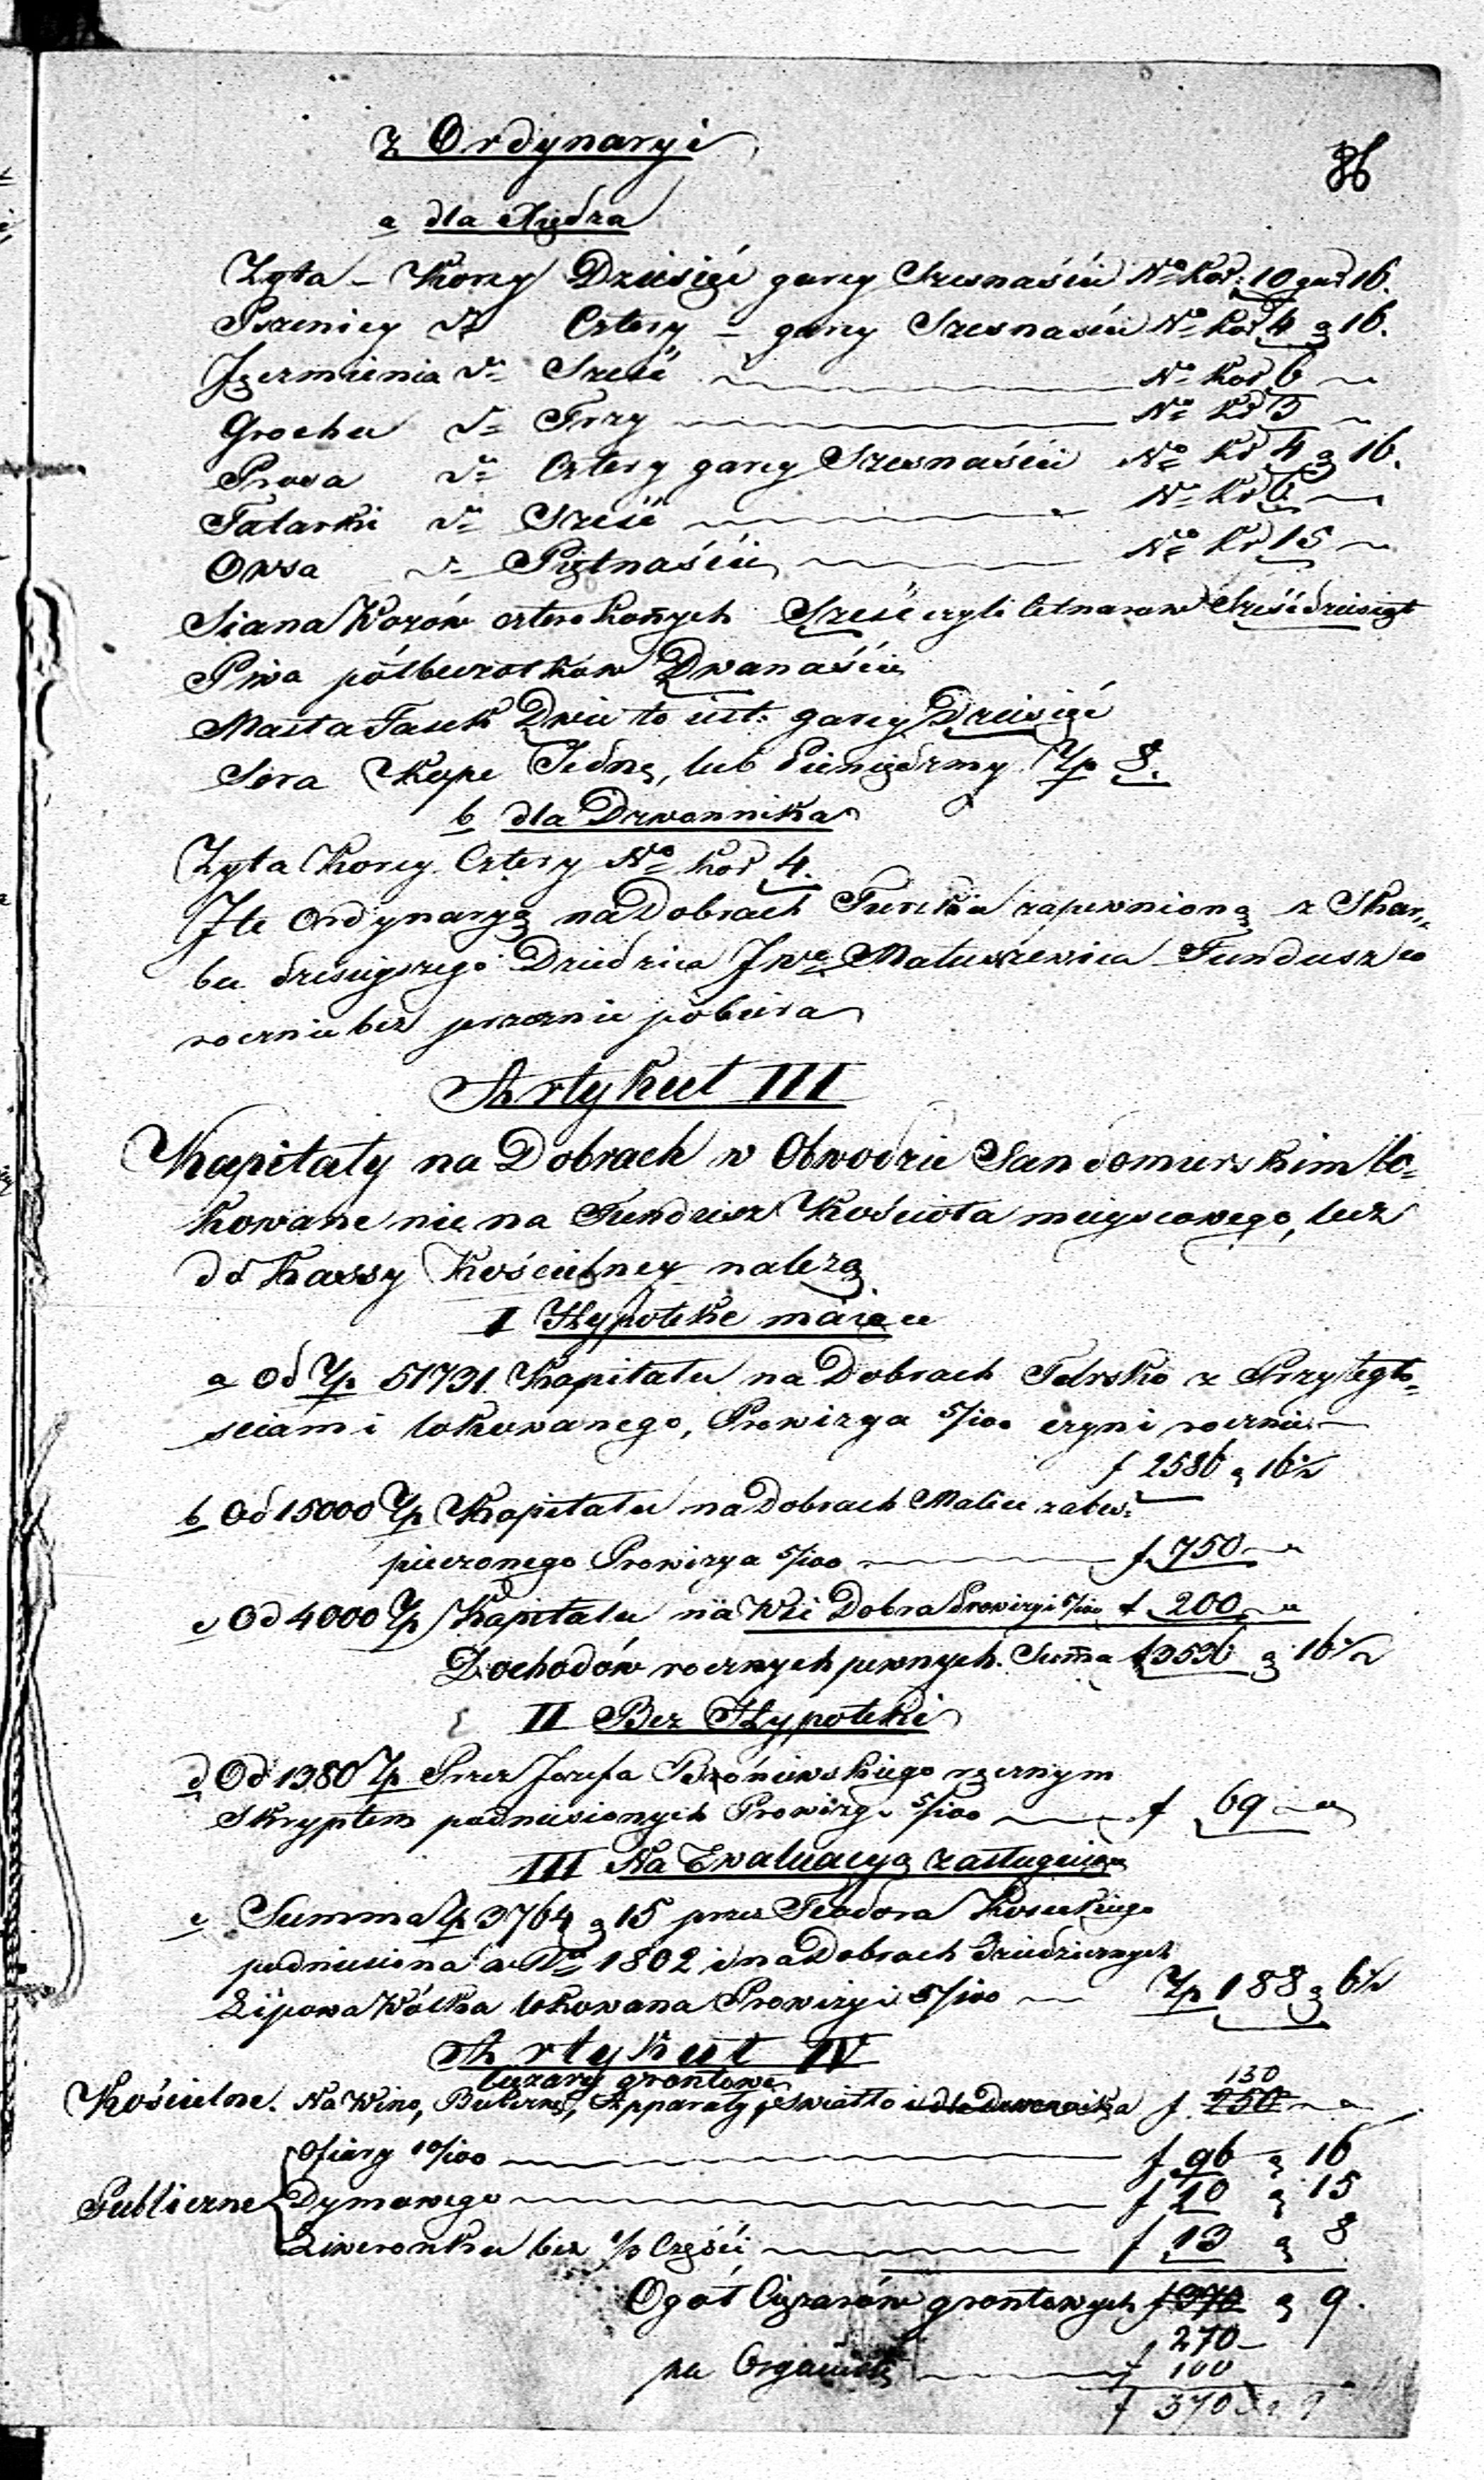 z Ordynaryi
36
a dla Xiędza
Zyta – Korcy Dziesięć garcy Szesnaście No Kor: 10 gar 16.
Pszenicy do Cztery – garcy Szesnaście No Kor 4 g 16.
Jęczmienia do Sześć No Kor 6
Grochu do Trzy No Kr 3
Prosa do Cztery garcy Szesnaście No Kr 4 g 16.
Tatarki do Sześć No Kr 6
Owsa do Piętnaście No Kr 15
Siana Wozów cztero konnych Sześć czyli Cetnarow Sześćdziesiąt
Piwa półbeczotkow Dwanaście
Masła Fasek Dwie to iest: garcy Dziesięć
Séra Kopę Jedną, lub Pieniędzmy Zp 8.
b dla Dzwonnika
Zyta Korcy Cztery No Kor 4.
Jte Ordynaryą na Dobrach zapewnioną z Skar=
bu dzisieyszego Dziedzica JWo Matuszewica Fundusz co
rocznie bez przecznie pobiera
Artykuł III
Kapitały na Dobrach w Obwodzie Sandomierskim lo=
kowane nie na Fundusz Kościoła mieyscowego, lecz
do Kassy Kościelney należą
I Hypotekę maiące
a Od Zp 51731 Kapitału na Dobrach z Przyległo=
sciami lokowanego, Prowizya 5/100 czyni rocznie
f 2586 g 16½
b Od 15000 Zp Kapitału na Dobrach Malice zabes=
pieczonego Prowizya 5/100 f 750
c Od 4000 Zp Kapitału na Wsi Dobra Prowizyi 5/100 f 200
Dochodów rocznych pewnych. Summa f 3536 g 16½
II Bez Hypoteki
d Od 1380 Zp Przez Jozefa ręcznym
Skryptem podniesionych Prowizyi 5/100 f 69
III Na Ewaluacyą zasługuiące
e Summa Zp 3764 g 15 przez Teodora
podniesiona w Ro 1802 i na Dobrach Dziedzicznych
Lipowa Wólka lokowana Prowizyi 5/100 Zp 188 g 6½
Artykuł IV
Ciężary grontowe
130
Kościelne. Na Wino, Apparaty, Swiatło i dla Dzwonnika f 250
Ofiary 10/100 f 96 g 16
Publiczne Dymowego f 20 g 15
Liweronku bez Części f 13 g 8
Ogół Ciężarów grontowych f 370 g 9.
270
na Organistę f 100
f 370 g 9